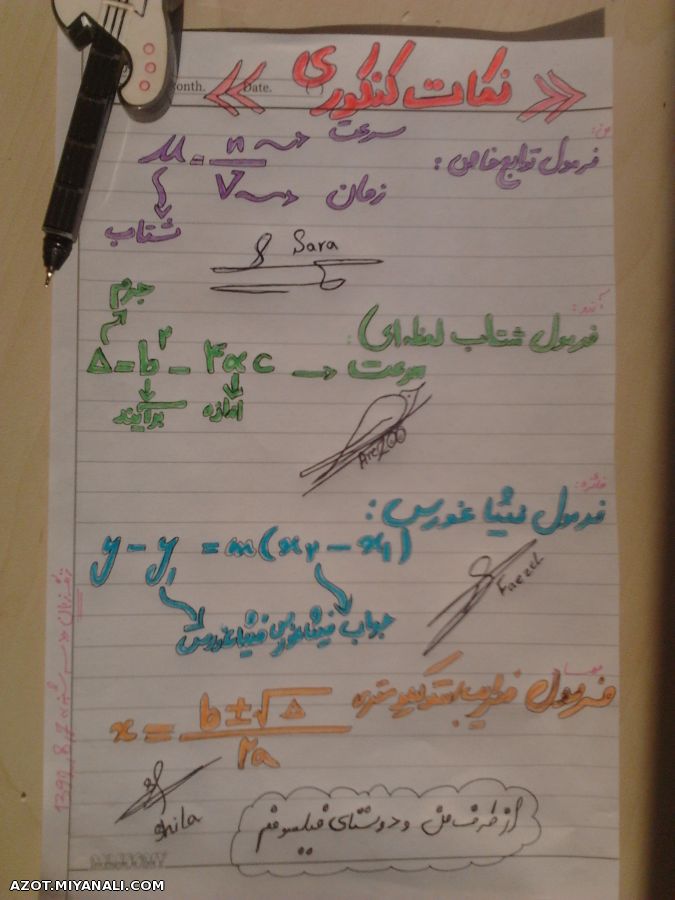 Month. Date.
« نکات کنکوری »
من:
فرمول توابع خاص:
μ = n/V
سرعت
زمان
شتاب
Sara
آرزو:
فرمول شتاب لحظه‌ای:
جرم
Δ = b² - ۴ac → سرعت
برآیند اندازه
Arezoo
فائزه:
فرمول فیثاغورس:
y - y₁ = m(x₂ - x₁)
جواب فیثاغورس فیثاغورس
Faezeh
فرمول
x = b ± √Δ / ۲a
Shila
از طرف من و دوستای فیلسوفم
AZOT.MIYANALI.COM